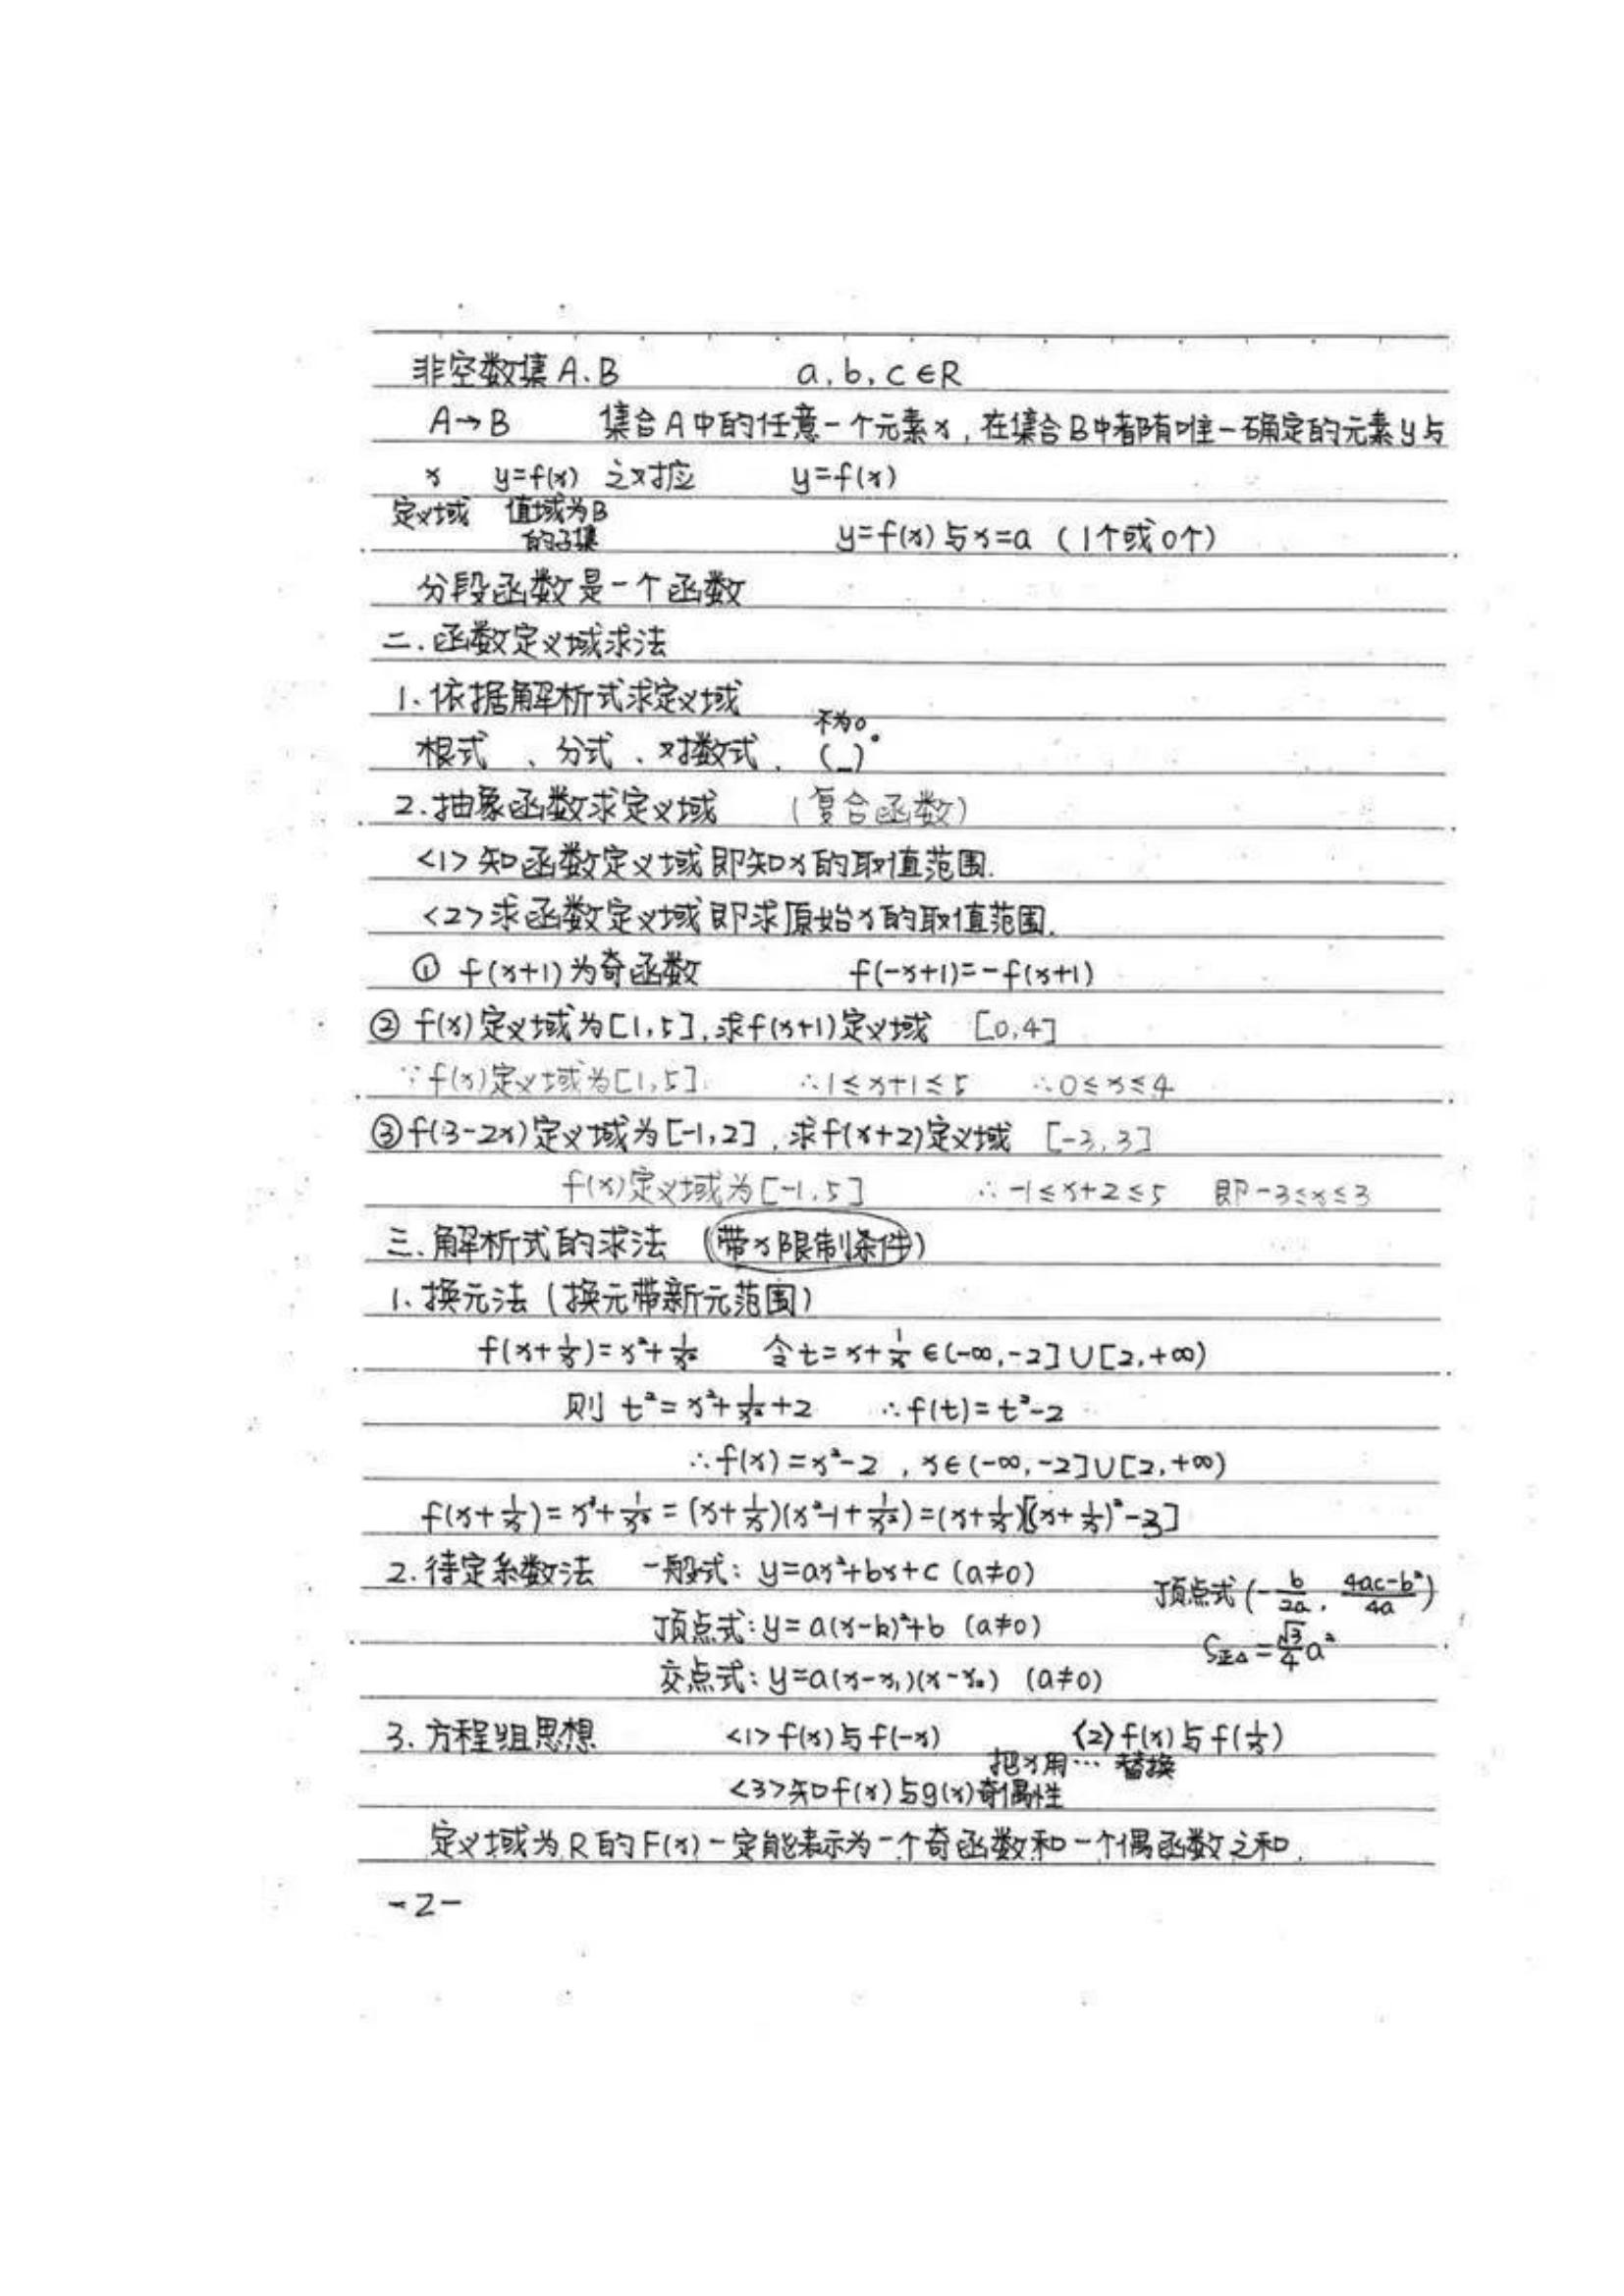 非空数集A、B a,b,c∈R
A→B 集合A中的任意一个元素x,在集合B中都有唯一确定的元素y与
x y=f(x) 之对应 y=f(x)
定义域 值域为B
的子集 y=f(x)与x=a (1个或0个)
分段函数是一个函数
二.函数定义域求法
1、依据解析式求定义域
不为0
根式、分式、对数式、(_)°
2.抽象函数求定义域 (复合函数)
<1>知函数定义域即知x的取值范围.
<2>求函数定义域即求原始x的取值范围.
① f(x+1)为奇函数 f(-x+1)=-f(x+1)
② f(x)定义域为[1,5],求f(x+1)定义域 [0,4]
∵f(x)定义域为[1,5]. ∴1≤x+1≤5 ∴0≤x≤4
③f(3-2x)定义域为[-1,2],求f(x+2)定义域 [-3,3]
f(x)定义域为[-1,5] ∴-1≤x+2≤5 即-3≤x≤3
三.解析式的求法 (带x限制条件)
1、换元法(换元带新元范围)
f(x+1/x)=x²+1/x² 令t=x+1/x∈(-∞,-2]∪[2,+∞)
则 t²=x²+1/x²+2 ∴f(t)=t²-2
∴f(x)=x²-2,x∈(-∞,-2]∪[2,+∞)
f(x+1/x)=x³+1/x³=(x+1/x)(x²-1+1/x²)=(x+1/x)[(x+1/x)²-3]
2.待定系数法 一般式:y=ax²+bx+c(a≠0)
顶点式(-b/2a,4ac-b²/4a)
顶点式:y=a(x-k)²+b (a≠0)
S正△=√3/4a²
交点式:y=a(x-x₁)(x-x₂) (a≠0)
3.方程组思想 <1>f(x)与f(-x) <2>f(x)与f(1/x)
把x用…替换
<3>知f(x)与g(x)奇偶性
定义域为R的F(x)一定能表示为一个奇函数和一个偶函数之和.
-2-